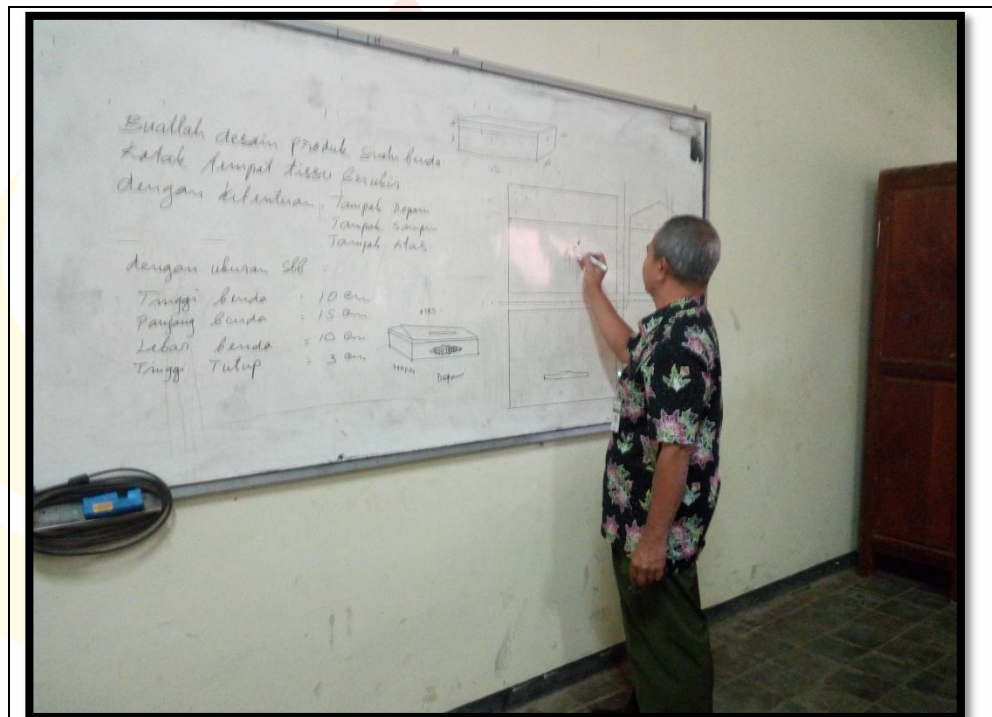 Buatlah desain produk suatu benda
Kotak tempat tissu berukir
dengan ketentuan : Tampak Depan
Tampak Samping
Tampak Atas
dengan ukuran sbb :
Tinggi benda : 10 cm
Panjang benda : 15 cm
Lebar benda : 10 cm
Tinggi Tutup : 3 cm
ATAS
Depan
15